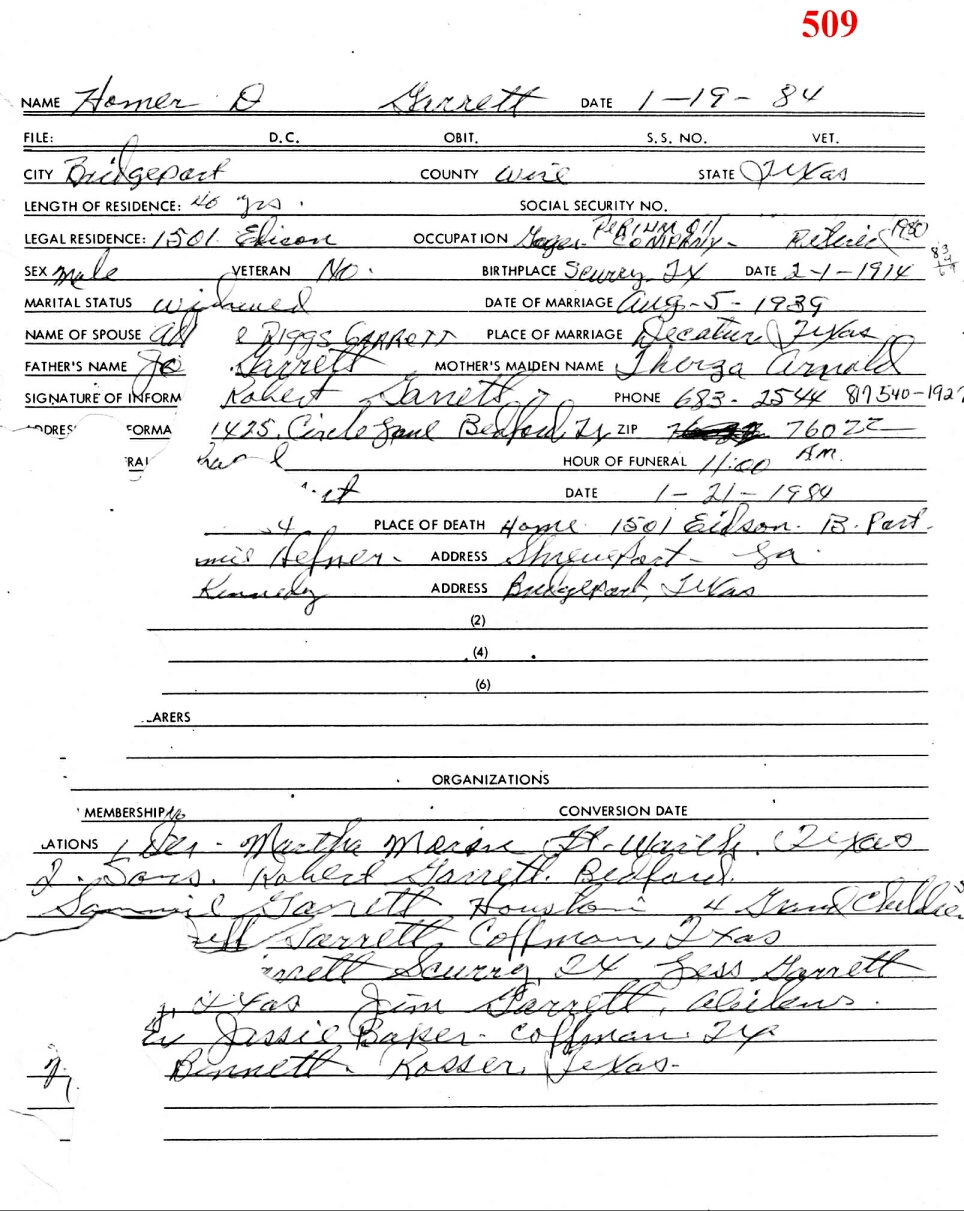 509
NAME Homer D Garrett DATE 1-19-84
FILE: D.C. OBIT. S.S. NO. VET.
CITY Bridgeport COUNTY Wise STATE Texas
LENGTH OF RESIDENCE: 40 yrs. SOCIAL SECURITY NO.
LEGAL RESIDENCE: 1501 Edison OCCUPATION COMPANY- Retired 1980
SEX Male VETERAN No. BIRTHPLACE Scurry, Tx DATE 2-1-1914 83
MARITAL STATUS Widowed DATE OF MARRIAGE Aug-5-1939
NAME OF SPOUSE e BIGGS GARRETT PLACE OF MARRIAGE Decatur, Texas
FATHER'S NAME Joe Garrett MOTHER'S MAIDEN NAME Thirza Arnold
SIGNATURE OF INFORM Robert Garrett PHONE 683-2544 817 540-1927
DDRES FORMA 1425 Circle Lane Bedford, Tx ZIP 76022
RAL HOUR OF FUNERAL 11:00 AM.
st DATE 1-21-1984
4 PLACE OF DEATH Home 1501 Eidson. B. Port.
mie Hefner- ADDRESS Shreveport La.
Kennedy ADDRESS Bridgeport, Texas
(2)
(4)
(6)
ARERS
ORGANIZATIONS
MEMBERSHIP No CONVERSION DATE
LATIONS 1 Martha Ft. Worth, Texas
2. Sons. Robert Garrett. Bedford.
Sammie Garrett Houston 4 Grand Children
Garrett, Coffman, Texas
rrett Scurry, TX Jess Garrett
Texas Jim Garrett, Abilene.
Jessie Baker- Coffman TX
Bennett. Rosser, Texas-